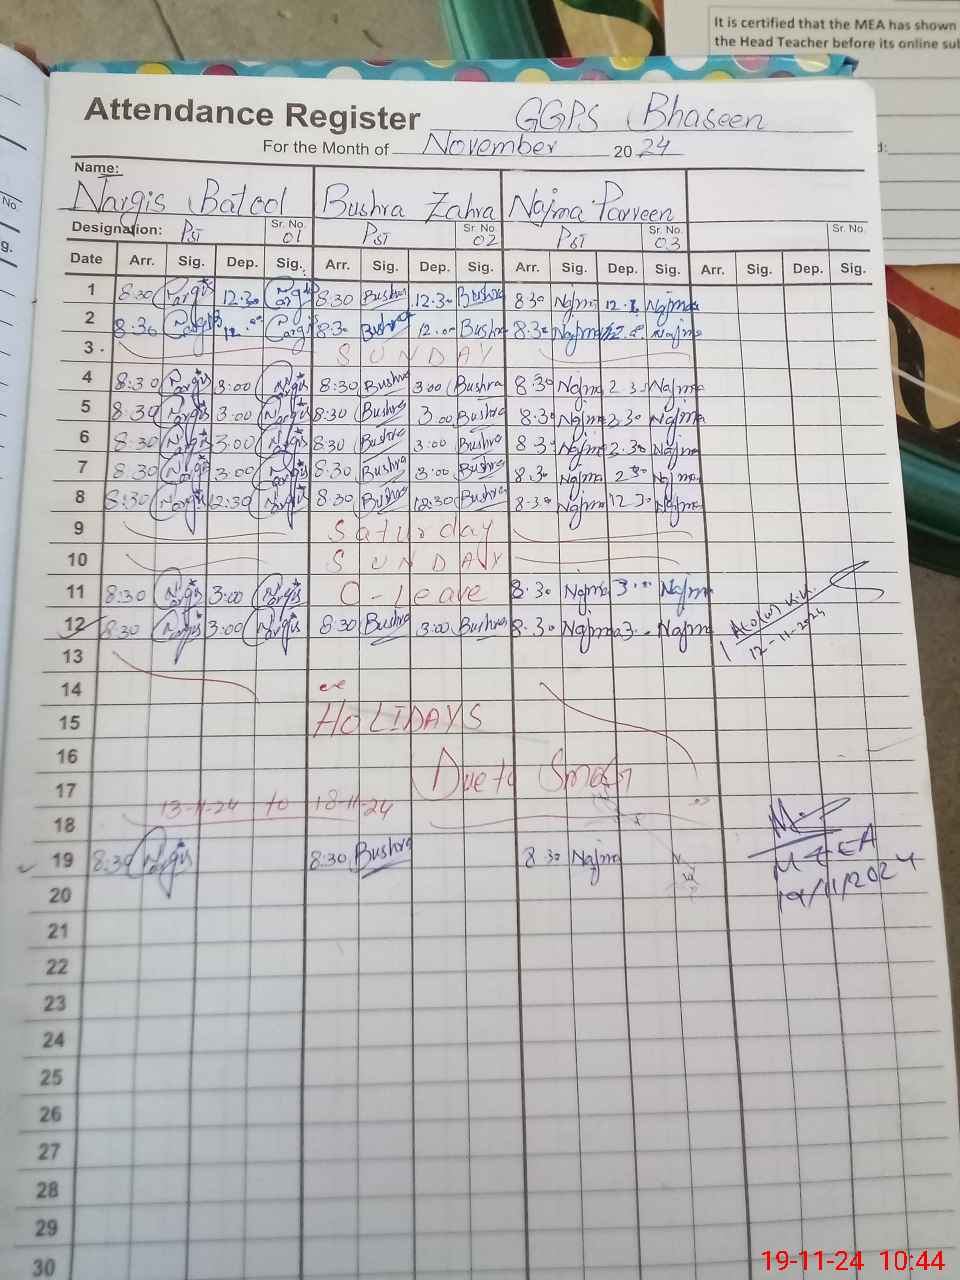 It is certified that the MEA has shown
the Head Teacher before its online sub
Attendance Register GGPS Bhaseen
For the Month of November 2024
Name:
Nargis Batool Bushra Zahra Najma Parveen
Designation: PST Sr. No. 01 PST Sr. No. 02 PST Sr. No. 03 Sr. No.
Date Arr. Sig. Dep. Sig. Arr. Sig. Dep. Sig. Arr. Sig. Dep. Sig. Arr. Sig. Dep. Sig.
1 8:30 Nargis 12:30 Nargis 8:30 Bushra 12:30 Bushra 8:30 Najma 12.3 Najma
2 8:30 Nargis 12:00 Nargis 8:30 Bushra 12:00 Bushra 8:30 Najma 12.0 Najma
3 SUNDAY
4 8:30 Nargis 3:00 Nargis 8:30 Bushra 3:00 Bushra 8:30 Najma 2 3 Najma
5 8:30 Nargis 3:00 Nargis 8:30 Bushra 3:00 Bushra 8:30 Najma 2.30 Najma
6 8:30 Nargis 3:00 Nargis 8:30 Bushra 3:00 Bushra 8:3 Najma 2.30 Najma
7 8:30 Nargis 3:00 Nargis 8:30 Bushra 3:00 Bushra 8.30 Najma 2 30 Najma
8 8:30 Nargis 12:30 Nargis 8:30 Bushra 12:30 Bushra 8:30 Najma 12 30 Najma
9 Saturday
10 SUNDAY
11 8:30 Nargis 3:00 Nargis C-leave 8.30 Najma 3.00 Najma
12 8:30 Nargis 3:00 Nargis 8:30 Bushra 3:00 Bushra 8.30 Najma 3. Najma
12-11-2024
13
14
15 HOLIDAYS
16
17 Due to Smog
13-11-24 to 18-11-24
18
19 8:30 Nargis 8:30 Bushra 8 30 Najma
MEA
19/11/2024
20
21
22
23
24
25
26
27
28
29
30
19-11-24 10:44